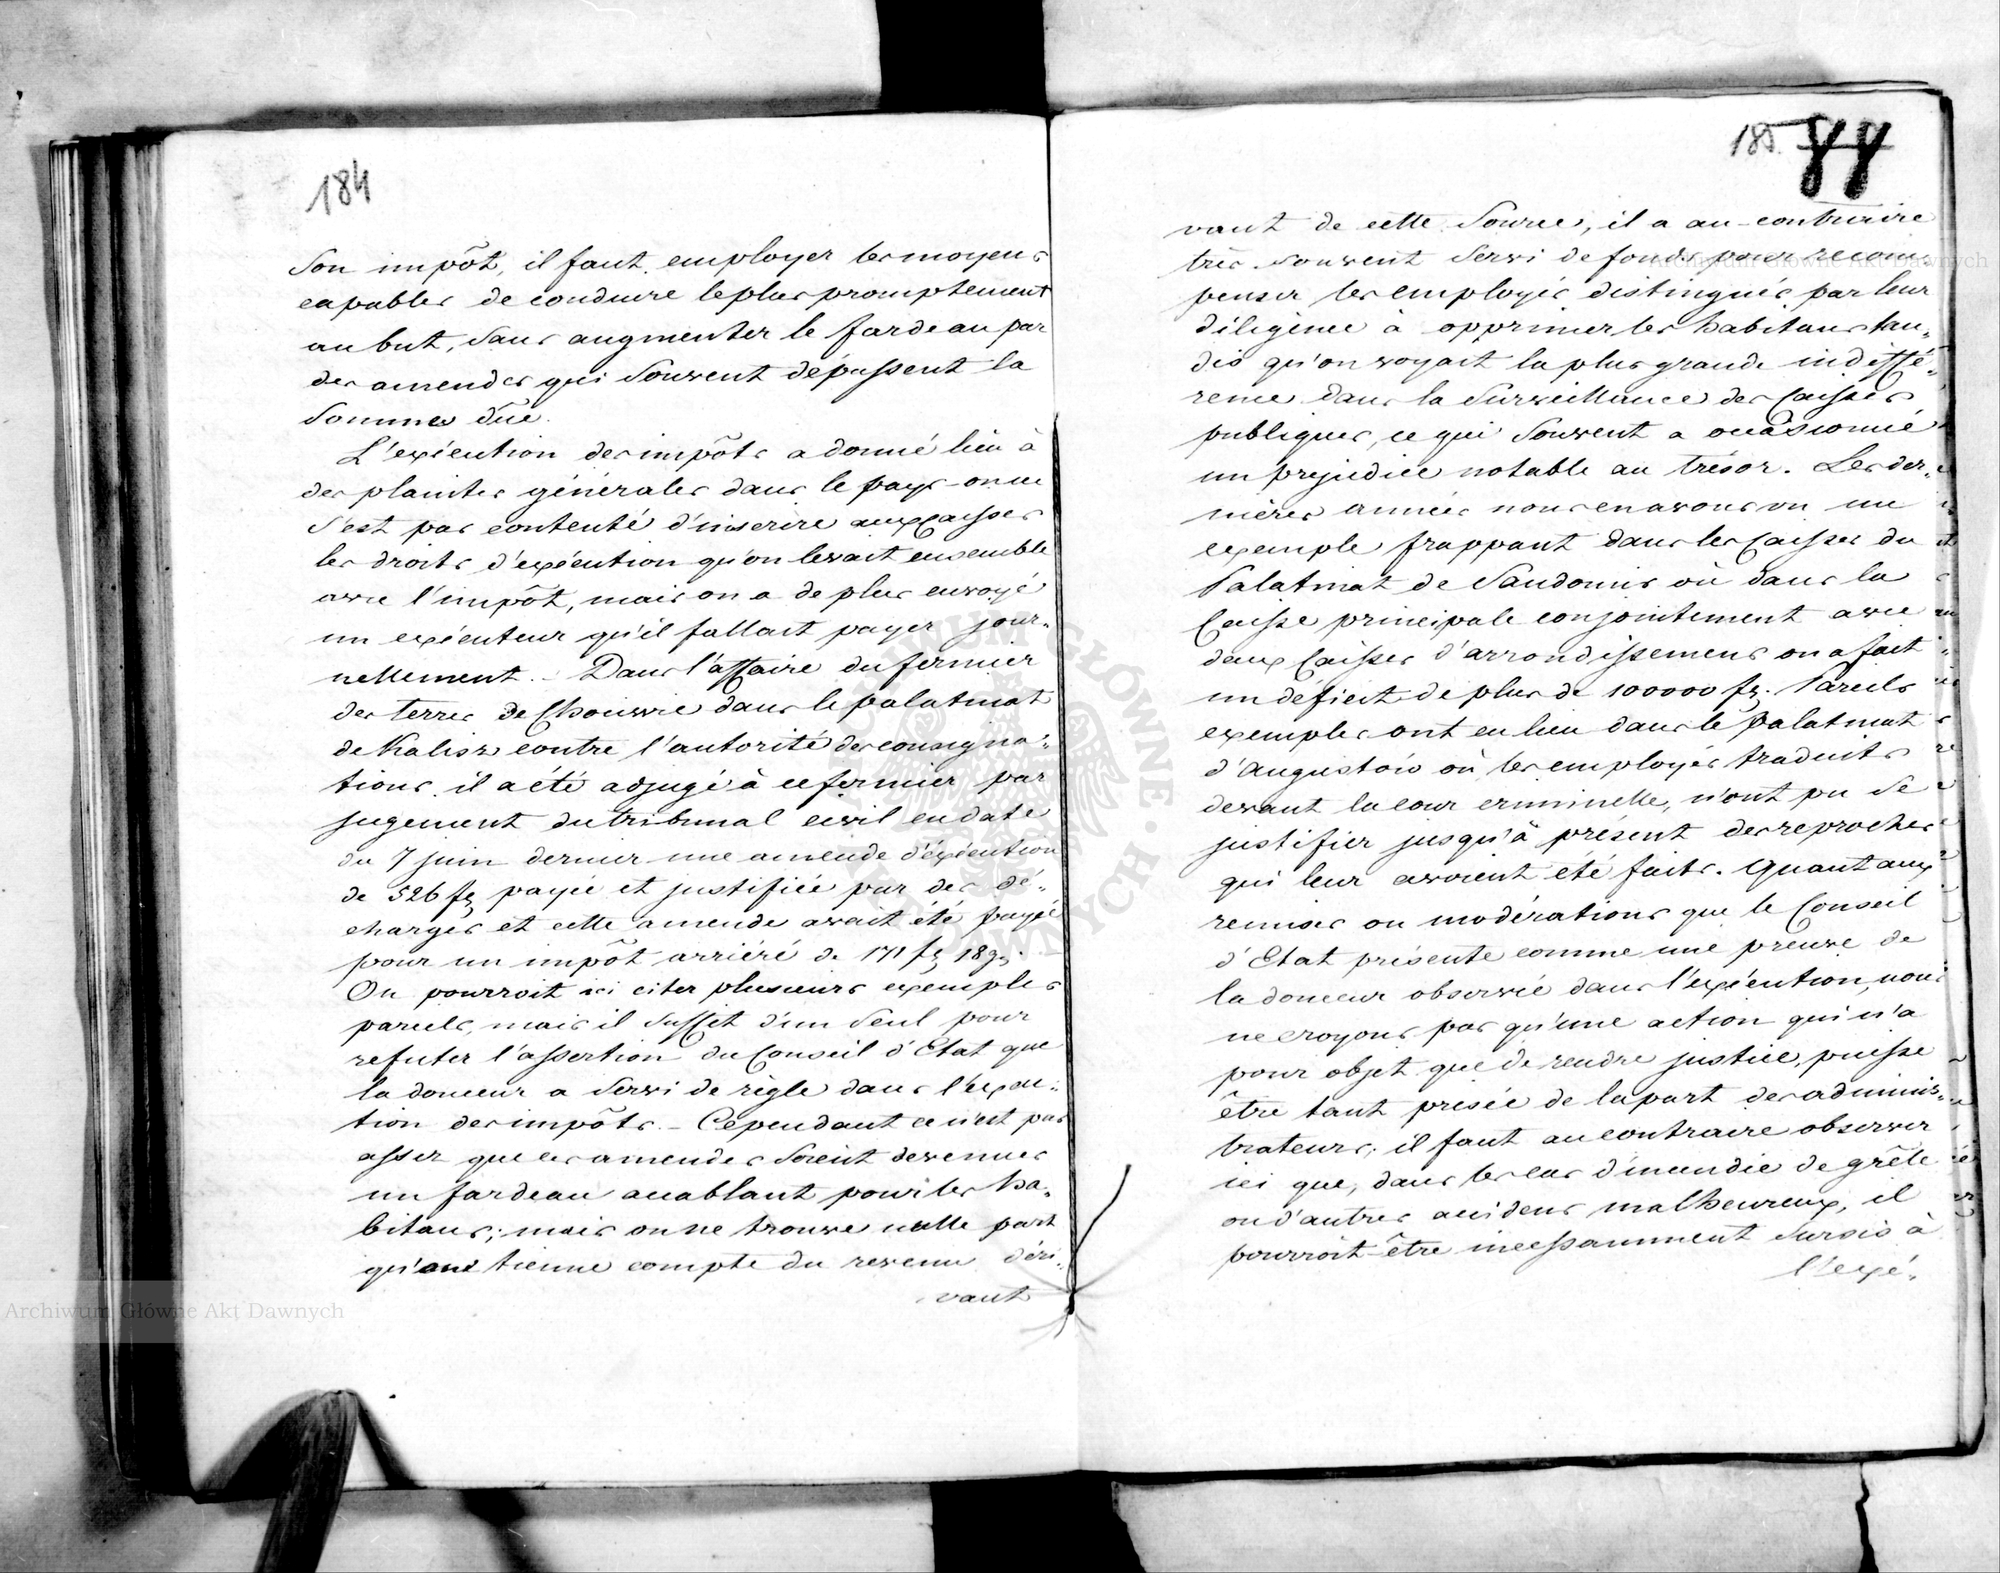 184
Son impôt, il faut employer les moyens
capables de conduire le plus promptement
au but, sans augmenter le fardeau par
des amendes qui souvent dépassent la
Somme dûe.
L'exécution des impôts a donné lieu à
des plaintes générales dans le pays - on ne
s'est pas contenté d'inscrire aux Caisses
les droits d'exécution qu'on levait ensemble
avec l'impôt, mais on a de plus envoyé
un exécuteur qu'il fallait payer jour-
nellement. - Dans l'affaire du fermier
des terres de dans le palatinat
de Kalisz contre l'autorité des consigna-
tions, il a été adjugé à ce fermier par
jugement du tribunal civil en date
du 7 juin dernier une amende d'éxécution
de 526 fz payée et justifiée par des dé-
charges et cette amende avait été payée
pour un impôt arriéré de 171 fz 18 gs.
On pourroit ici citer plusieurs exemples
pareils, mais il suffit d'un seul pour
refuter l'assertion du Conseil d'Etat que
la douceur a servi de règle dans l'exécu-
tion des impôts. - Cependant ce n'est pas
assez que les amendes soient devenues
un fardeau accablant pour les ha-
bitans; mais on ne trouve nulle part
qu'on tienne compte du revenu déri-
vant
185. 88
vant de cette Source, il a au-contraire
très souvent servi de fonds pour recom-
penser les employés distingués par leur
diligence à opprimer les habitans tan-
dis qu'on voyait la plus grande indiffé-
rence dans la surveillance des Caisses
publiques, ce qui souvent a occasionné
un préjudice notable au trésor. Les der-
nières années nous en avons vu un
exemple frappant dans les Caisses du
Palatinat de Sandomir où dans la
Caisse principale conjointement avec
deux Caisses d'arrondissemens on a fait
un déficit de plus de 100000 fz. Pareils
exemples ont eu lieu dans le Palatinat
d'Augustów où les employés traduits
devant la cour criminelle, n'ont pu se
justifier jusqu'à présent des reproches
qui leur avoient été faits. Quant aux
remises ou modérations que le Conseil
d'Etat présente comme une preuve de
la douceur observée dans l'exécution, nous
ne croyons pas qu'une action qui n'a
pour objet que de rendre justice, puisse
être tant prisée de la part des adminis-
trateurs; il faut au contraire observer
ici que, dans les cas d'incendie de grêle
ou d'autres accidens malheureux, il
pourroit être incessamment sursis à
l'exé-
Archiwum Główne Akt Dawnych
Archiwum Główne Akt Dawnych